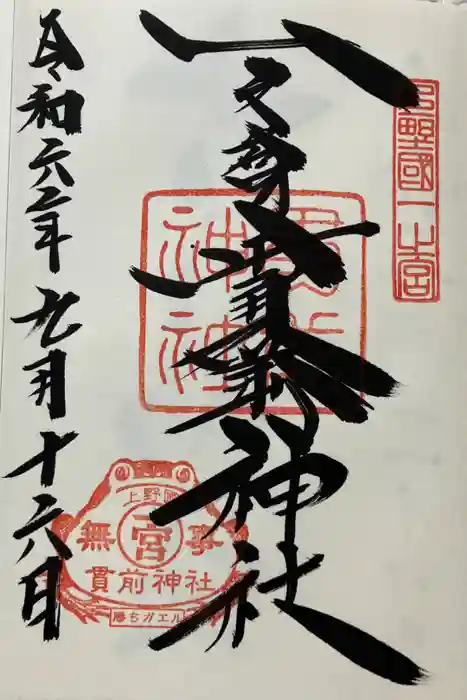 上野國一之宮
一之宮貫前神社
貫前
神社
令和六年九月十六日
上野國
無事
一宮
貫前神社
勝ちガエル